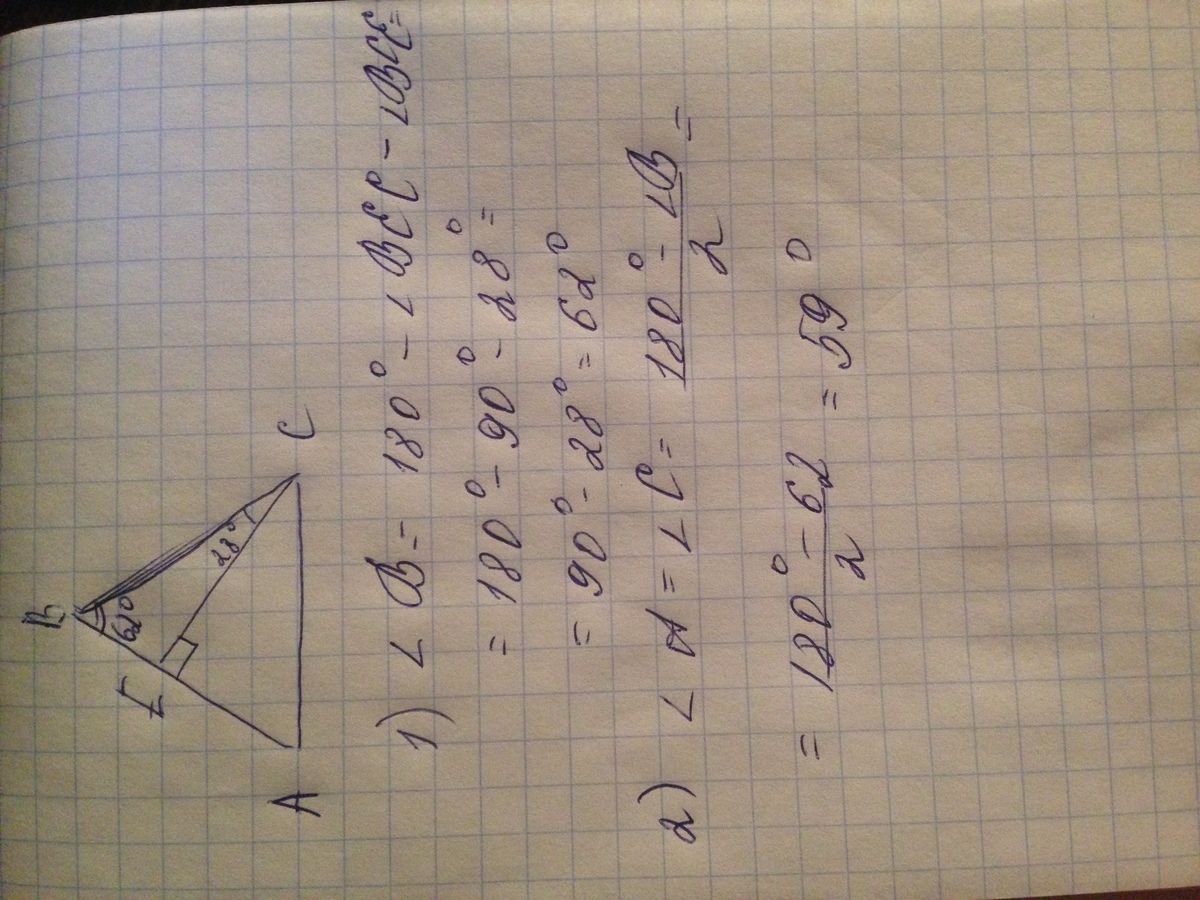 B
E
62°
28°
A
C
1) ∠B = 180° - ∠BEC - ∠BCE =
= 180° - 90° - 28° =
= 90° - 28° = 62°
2) ∠A = ∠C = (180° - ∠B)/2 =
= (180° - 62)/2 = 59°